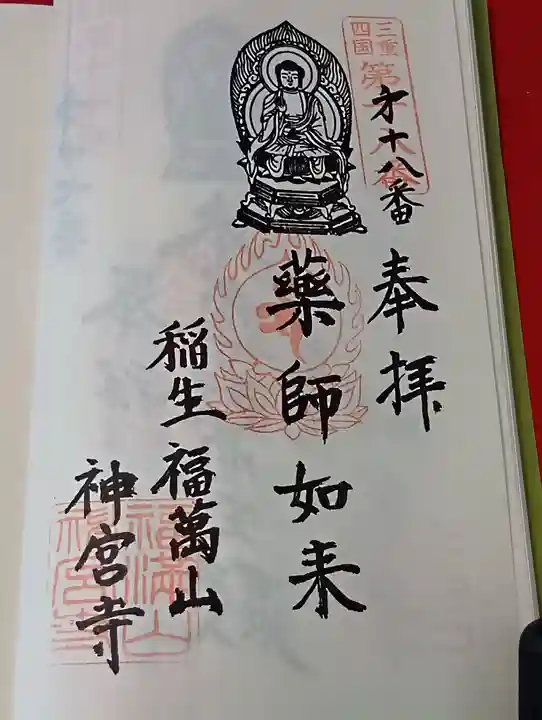 三重
四国
第十八番
才十八番
奉拝
薬師如来
稲生福萬山
神宮寺
福満山